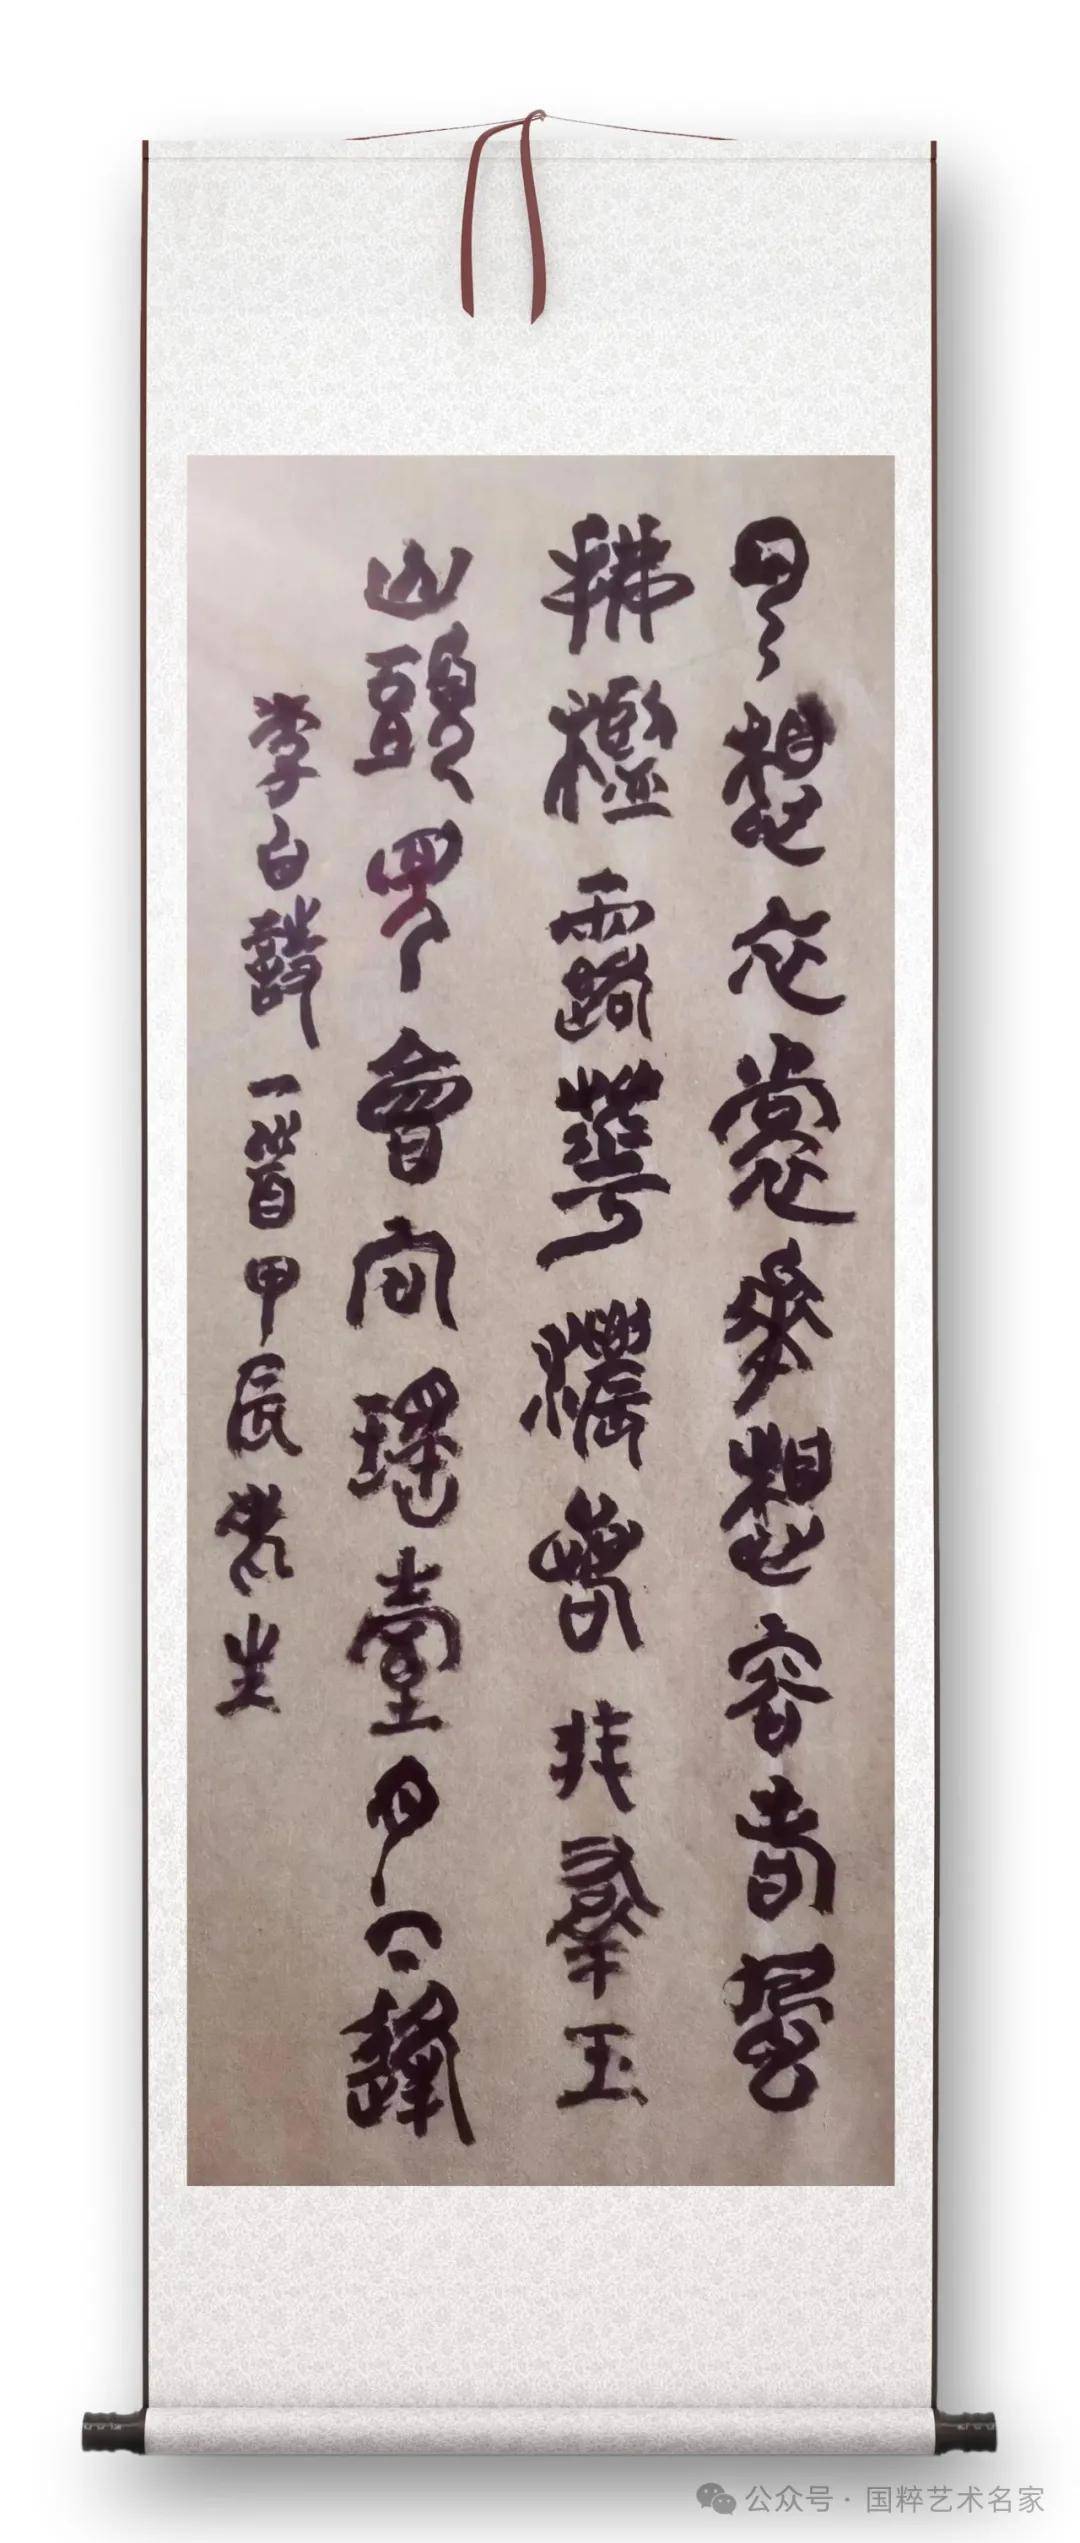 云想衣裳花想容春風
拂檻露華濃若非羣玉
山頭見會向瑤臺月下逢
李白詩一首甲辰
公众号·国粹艺术名家